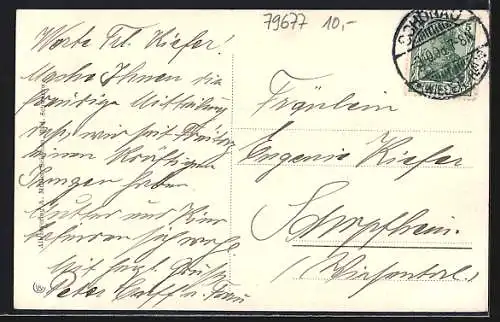 79677 10,-
SCHÖNAU
(WIESEN
Werte Frl. Kiefer!
Mache Ihnen die
freudige Mitteilung
daß wir seit Freitag
einen kräftigen
Jungen haben.
Mutter und Kind
befinden sich wohl
Mit frdl. Gruß
Peter u. Frau
Fräulein
Eugenie Kiefer
Schopfheim
(Wiesental)